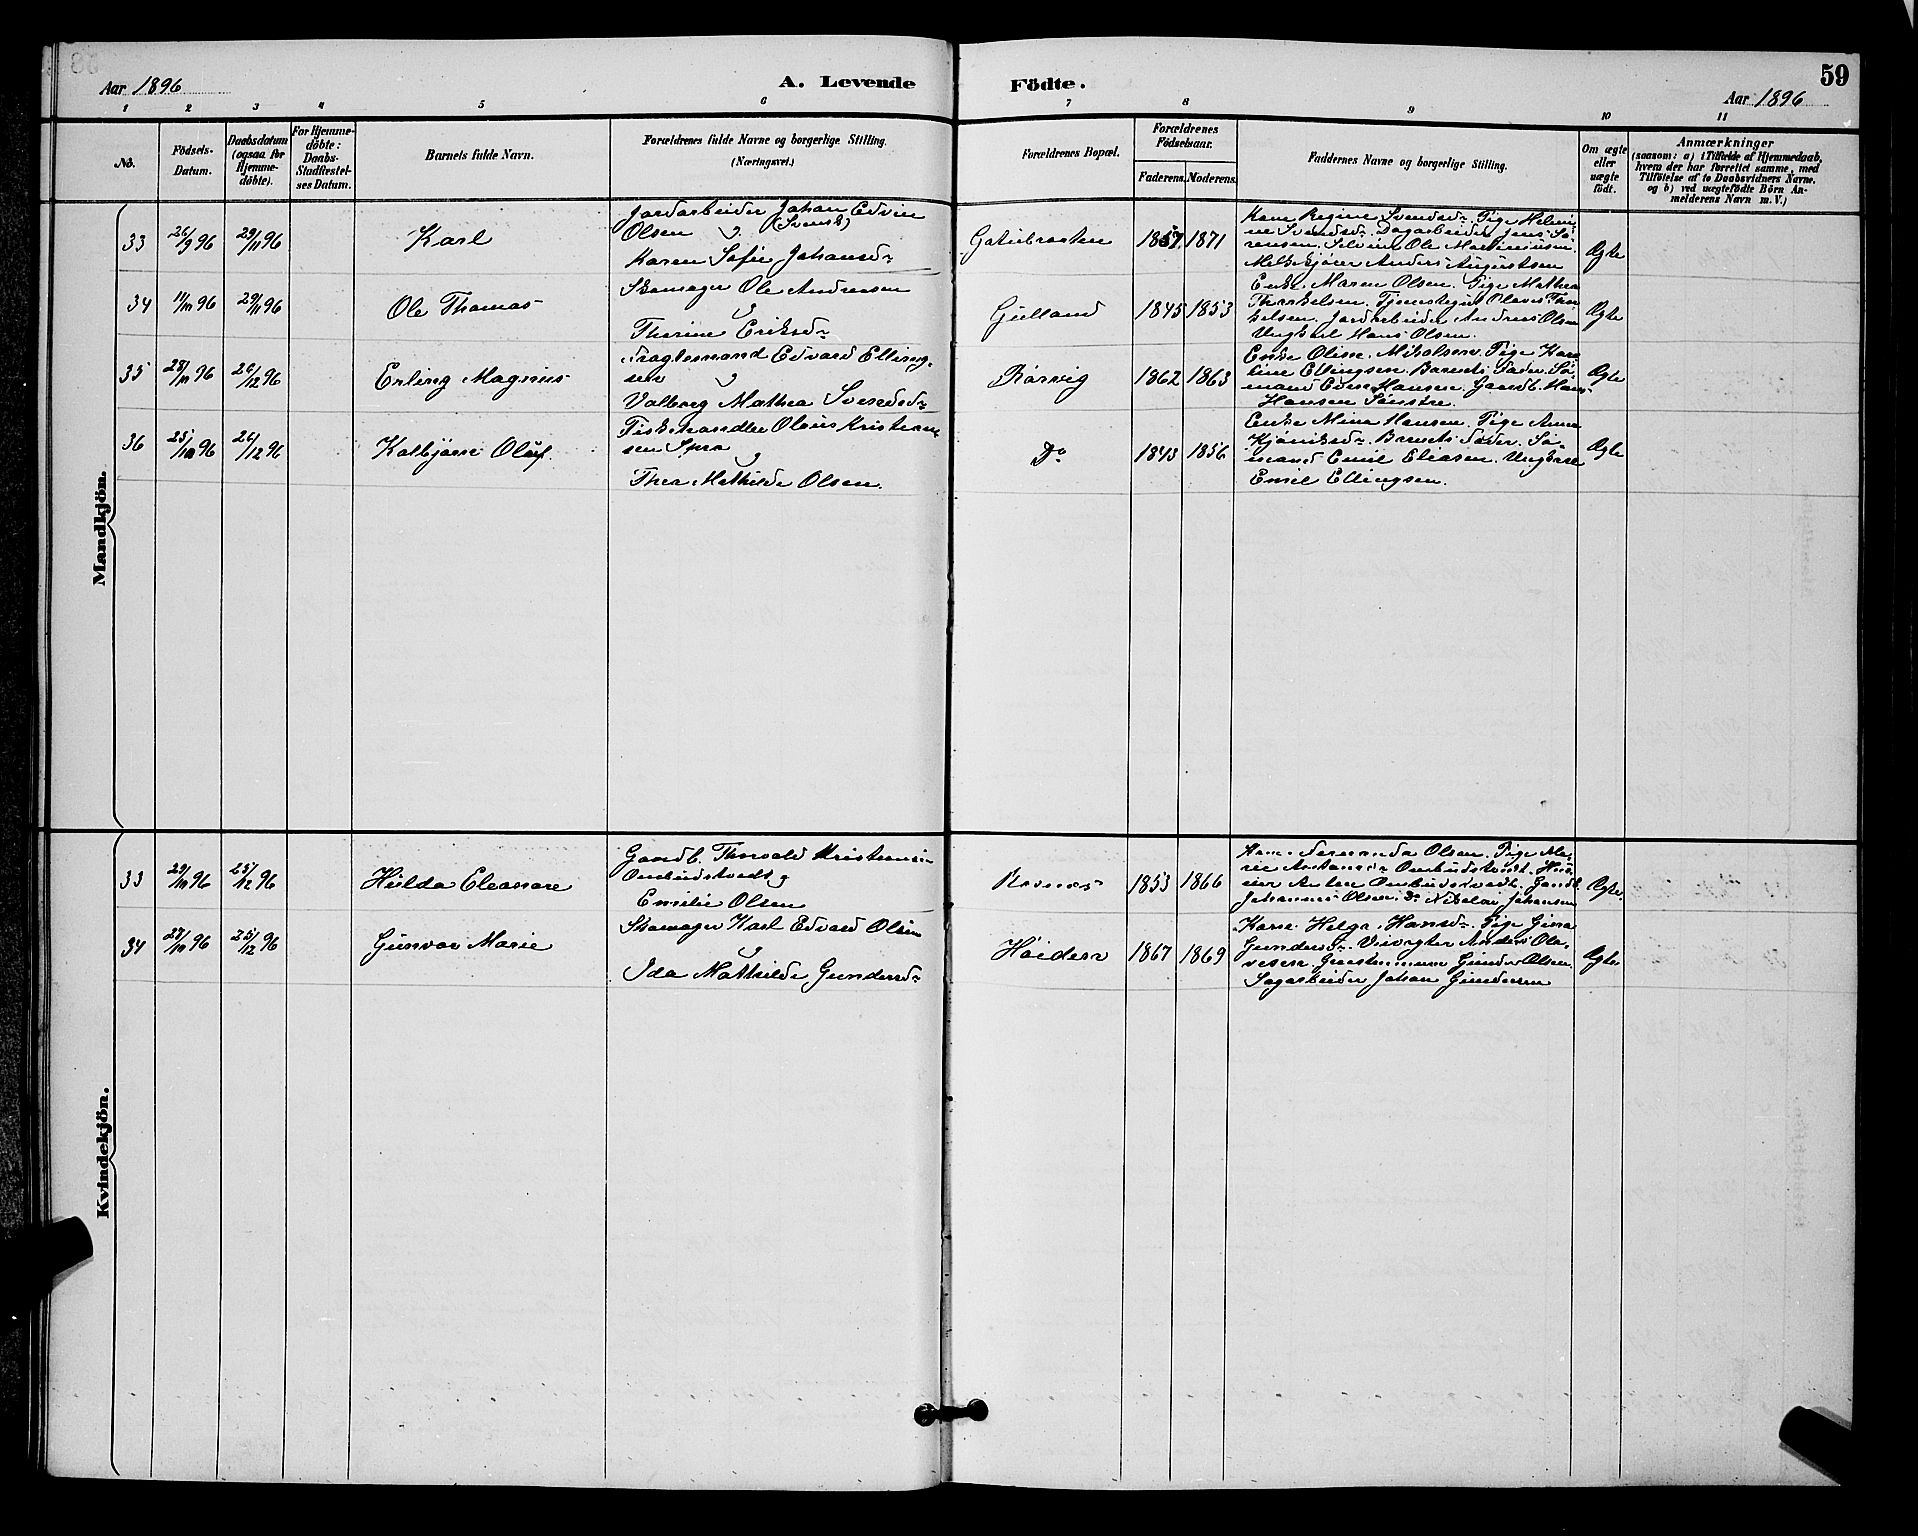 Aar 1896
A. Levende
Födte.
59
Aar 1896
1 2 3 4 5 6 7 8 9 10 11
No.
Födsels-Datum.
Daabsdatum (ogsaa for Hjemme-döbte).
For Hjemme-döbte: Daabs-Stadfestel-ses Datum.
Barnets fulde Navn.
Forældrenes fulde Navne og borgerlige Stilling.
(Næringsvei.)
Forældrenes Bopæl.
Forældrenes Födselsaar.
Faderens. Moderens.
Faddernes Navne og borgerlige Stilling.
Om ægte eller uægte födt.
Anmærkninger
(saasom: a) i Tilfælde af Hjemmedaab, hvem der har forrettet samme, med Tilföielse af to Daabsvidners Navne, og b) ved uægtefödte Börn An-melderens Navn m. V.)
Mandkjön.
33 26/9 96 29/11 96 Karl
Jordarbeider Johan Edvin
Olsen (Svensk)
Karen Sofie Johansdr
1857 1871
Kone Regine Svendsdr. Pige Helmi-
ne Svendsdr. Dagarbeider Jens Sö-
rensen. Selveier Ole Martiniusen
Melkekjörer Anders Augustsen
Ægte
34 11/10 96 29/11 96 Ole Thomas
Skomager Ole Andreasen
Therine Eriksdr
Gulland 1845 1853
Enke Maren Olsen. Pige Mathea
Thorkelsen. Tjenestegut Olaves Thor-
kelsen. Jordarbeider Andreas Olsen
Ungkarl Hans Olsen.
Ægte
35 28/11 96 26/12 96 Erling Magnus
Fragtemand Edvard Elling-
sen
Valborg Mathea Svendsdr
Rörvig 1862 1863
Enke Oline Nikolsen. Pige Kare-
line Ellingsen. Barnets Fader. Sö-
mand Even Hansen. Gaardb. Hans
Hansen Sönstre.
Ægte
36 25/10 96 26/12 96 Kolbjörn Oluf
Fiskehandler Olaus Kristian-
sen
Thea Mathilde Olsen.
Do 1843 1856
Enke Mina Hansen. Pige Anna
Barnets Fader. Sö-
mand Emil Eliasen. Ungkarl
Emil Ellingsen.
Ægte
Kvindekjön.
33 29/10 96 25/12 96 Hulda Eleonore
Gaardb. Thorvald Kristiansen
Ombudstvedt
Emilie Olsen
1853 1866
Kone Fernanda Olsen. Pige Ma-
rie Ombudstvedt.
Anton Ombudstvedt. Gaardb.
Johannes Olsen. Do Nikolai Johansen
Ægte
34 28/10 96 25/12 96 Gunvor Marie
Skomager Karl Edvard Olsen
Ida Mathilde Gundersdr
Höiden 1867 1869
Kone Helga Hansdr. Pige Gina
Gundersdr. Anders Ola-
vesen. Gunder Olsen
Sagarbeider Johan Gundersen
Ægte